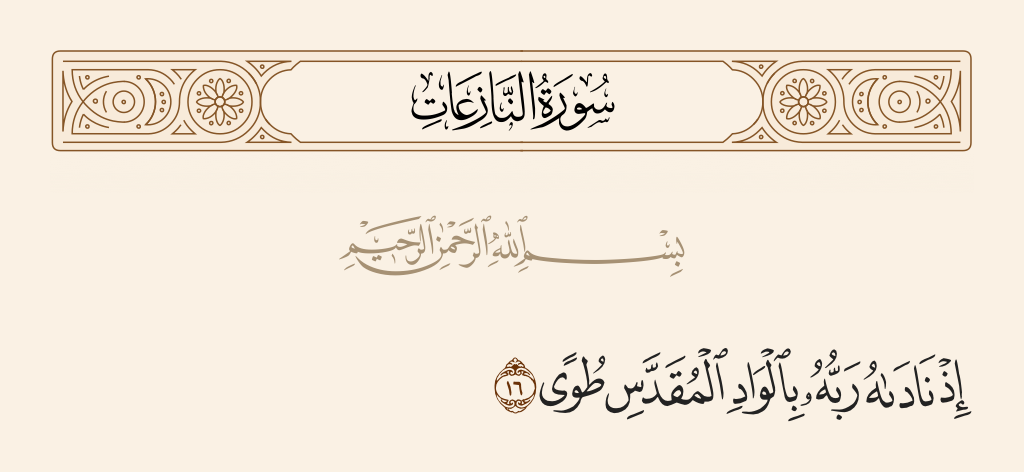 سُورَةُ النَّازِعَاتِ
بِسْمِ ٱللَّهِ ٱلرَّحْمَٰنِ ٱلرَّحِيمِ
إِذْ نَادَىٰهُ رَبُّهُۥ بِٱلْوَادِ ٱلْمُقَدَّسِ طُوًى ١٦